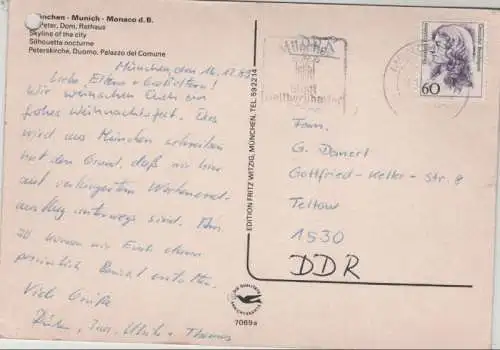 München · Munich · Monaco d. B.
Peter, Dom, Rathaus
Skyline of the city
Silhouette nocturne
Peterskirche, Duomo, Palazzo del Comune
München, den 16.12.89
Liebe Eltern + Großeltern!
Wir wünschen Euch ein
frohes Weihnachtsfest. Das
wird aus München schreiben
hat den Grund, daß wir hier
auf verlängertem Wochenend-
ausflug unterwegs sind. Am
können wir Euch einen
persönlich erstatten.
Viele Grüße
Ulrike + Thomas
EDITION FRITZ WITZIG, MÜNCHEN, TEL. 592214
7069a
60
Fam.
G. Damert
Gottfried-Keller-Str. 8
Teltow
1530
DDR